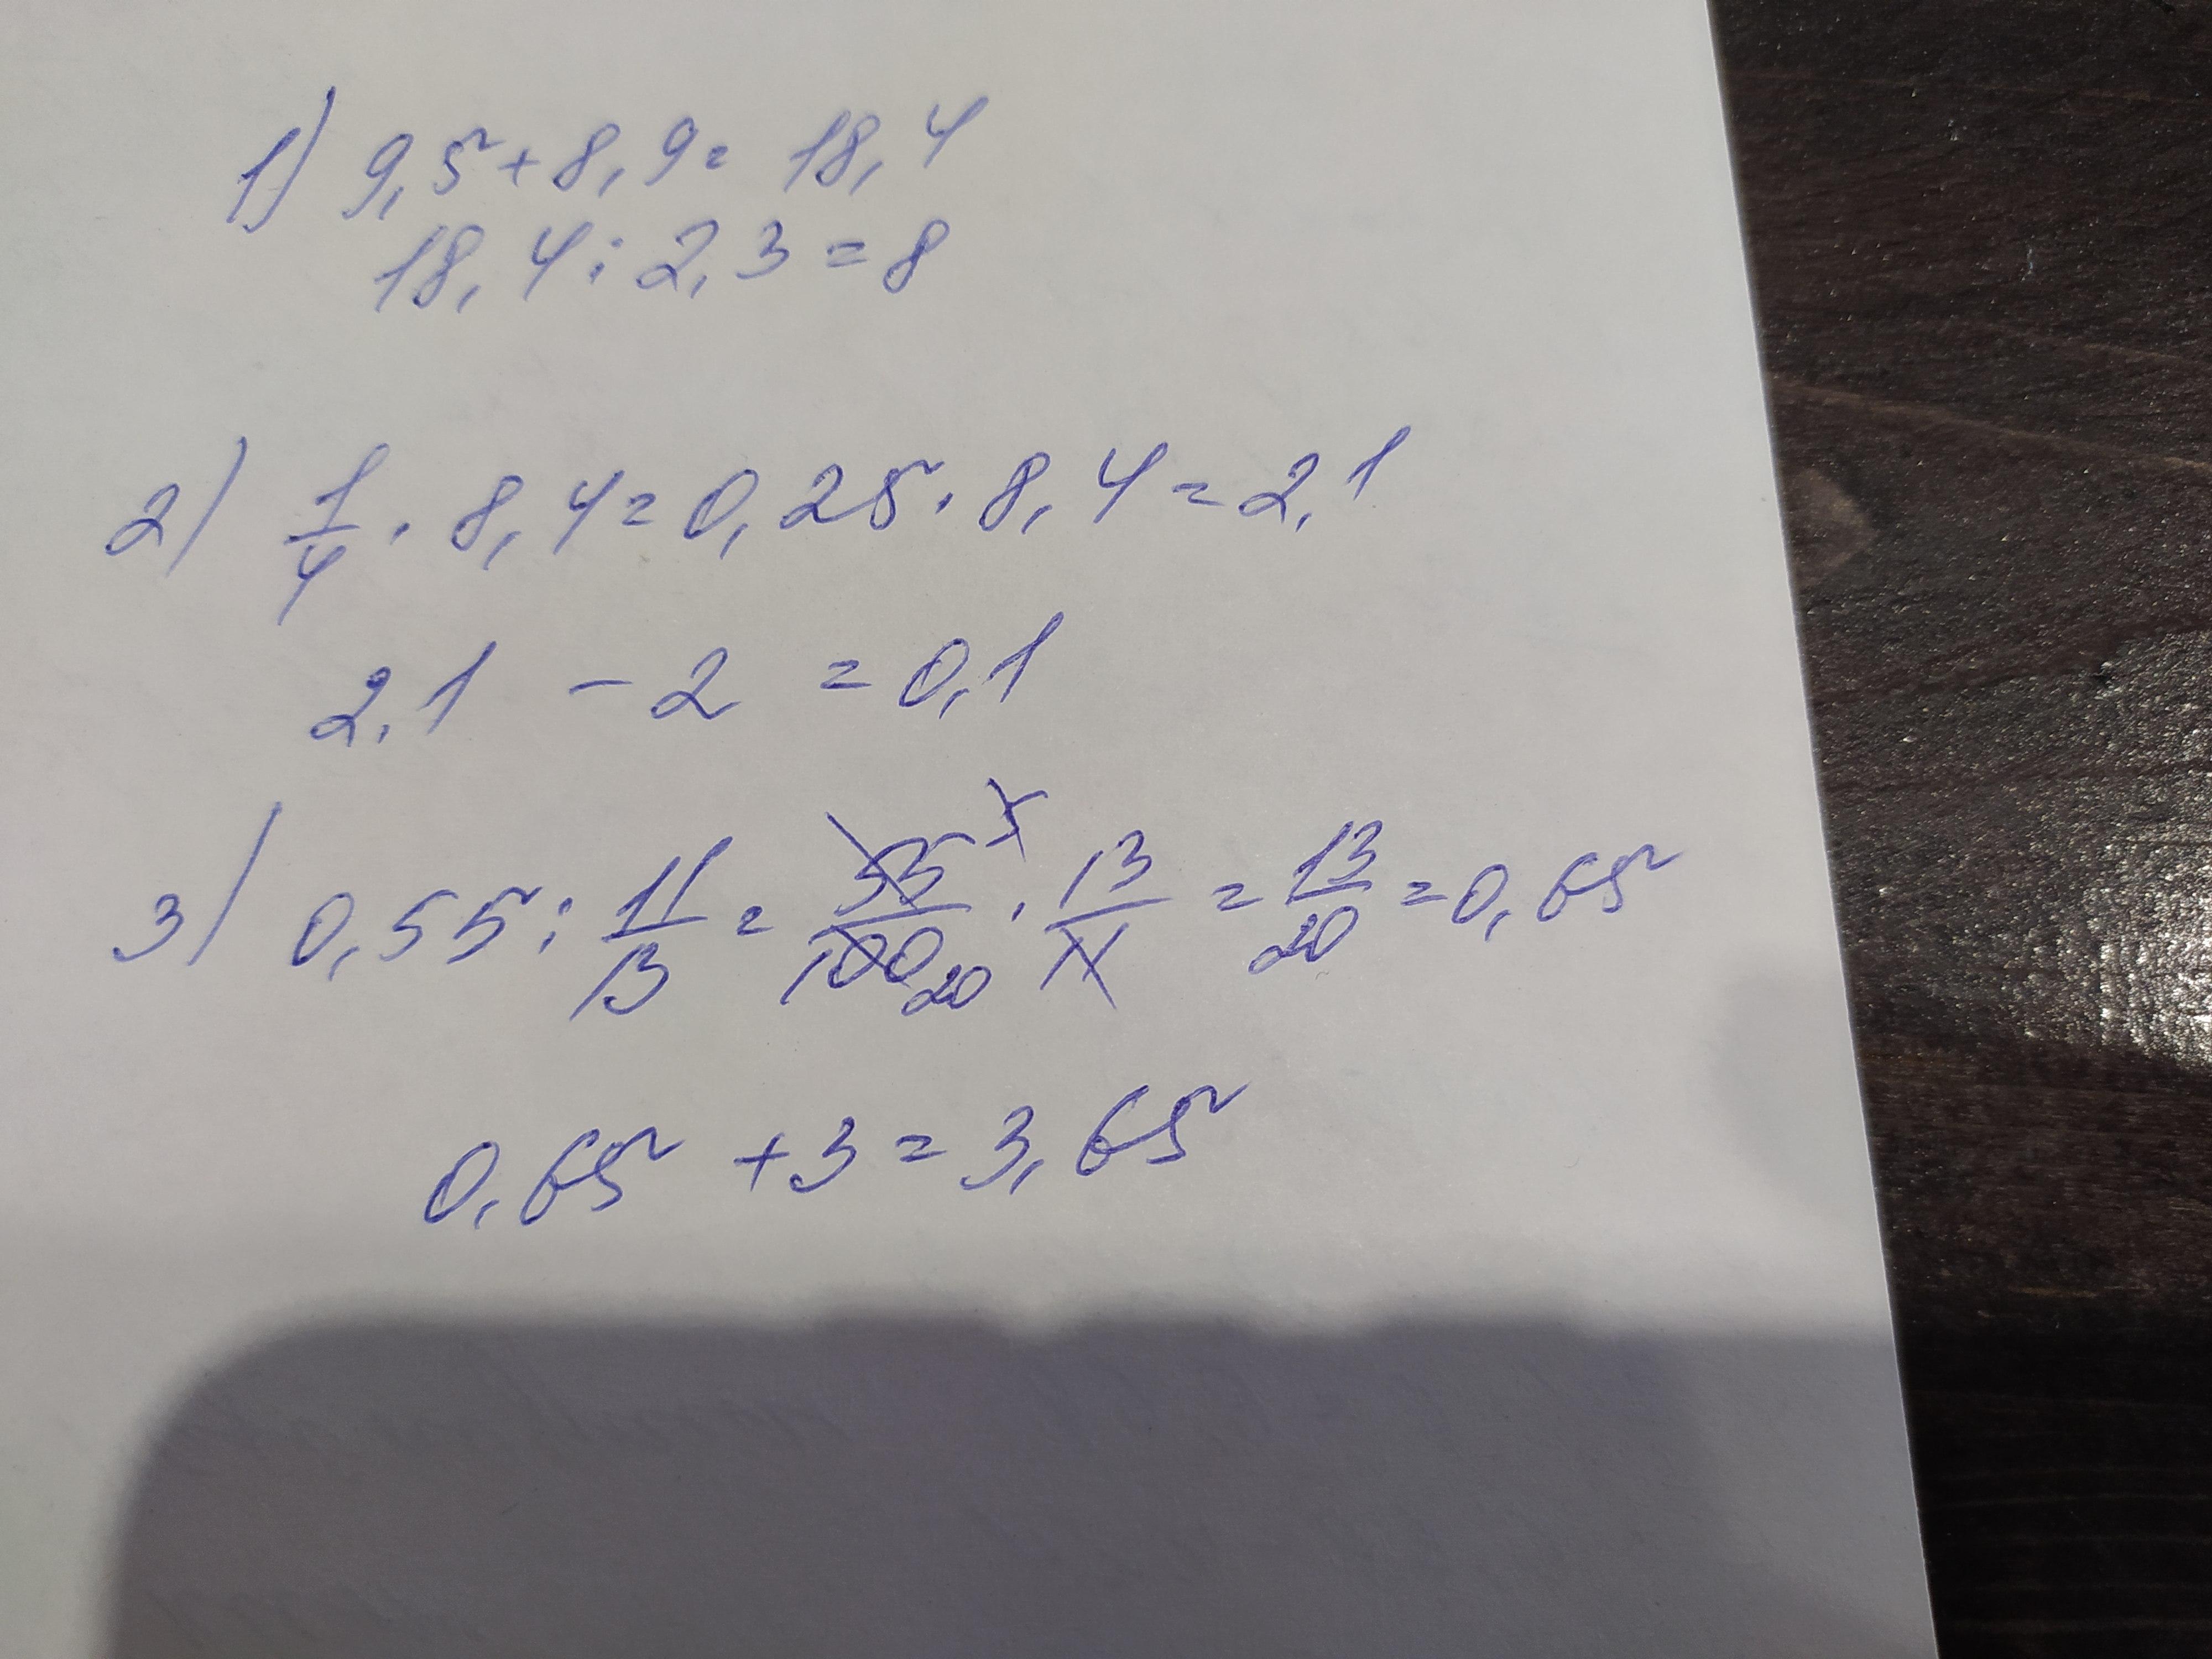 1) 9,5+8,9= 18,4
18,4:2,3=8
2) 1/4 · 8,4=0,25·8,4=2,1
2,1 -2 =0,1
3) 0,55:11/13=55 5/100 20·13/11=13/20=0,65
0,65 +3=3,65